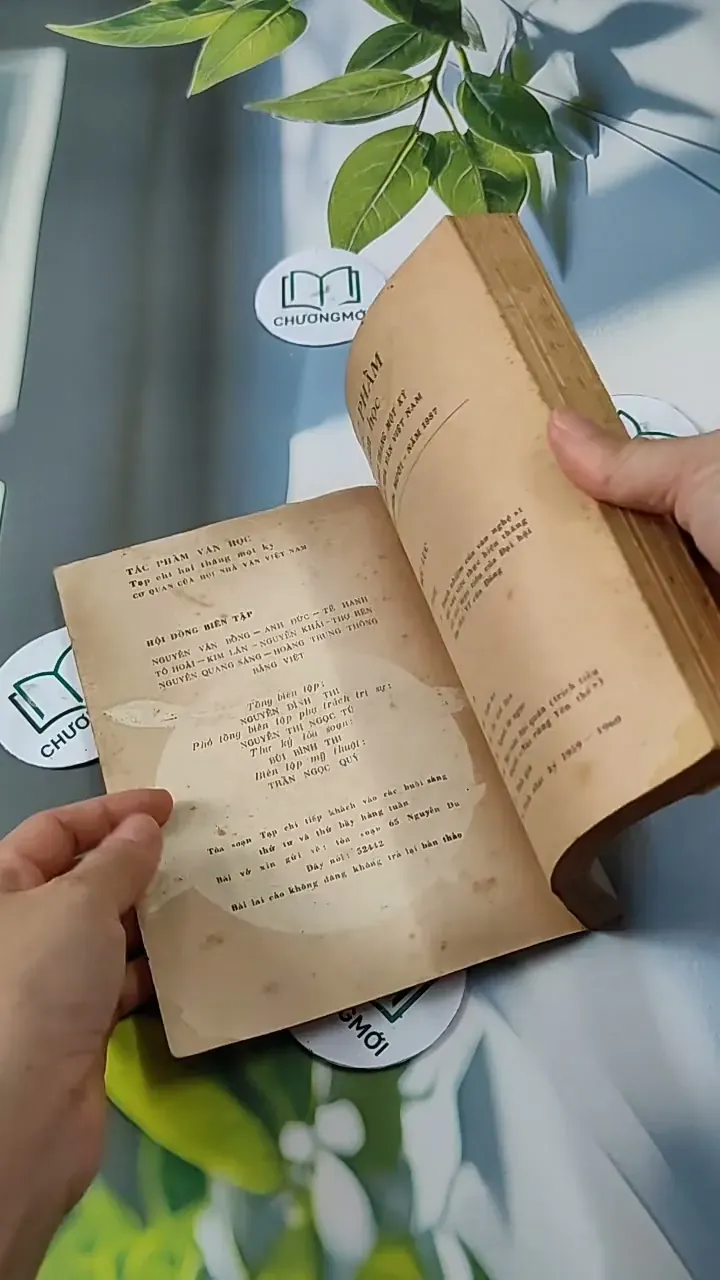 CHƯƠNGMỚI
TÁC PHẨM VĂN HỌC
Tạp chí hai tháng một kỳ
CƠ QUAN CỦA HỘI NHÀ VĂN VIỆT NAM
HỘI ĐỒNG BIÊN TẬP
NGUYỄN VĂN BỔNG — ANH ĐỨC — TẾ HANH
TÔ HOÀI — KIM LÂN — NGUYỄN KHẢI — THỢ RÈN
NGUYỄN QUANG SÁNG — HOÀNG TRUNG THÔNG
BẰNG VIỆT
Tổng biên tập:
NGUYỄN ĐÌNH THI
Phó tổng biên tập phụ trách trị sự:
NGUYỄN THỊ NGỌC TÚ
Thư ký tòa soạn:
BÙI BÌNH THI
Biên tập mỹ thuật:
TRẦN NGỌC QUỲ
Tòa soạn Tạp chí tiếp khách vào các buổi sáng
thứ tư và thứ bảy hàng tuần
Bài vở xin gửi về: tòa soạn 65 Nguyễn Du
Dây nói: 52442
Bài lai cảo không đăng không trả lại bản thảo
PHẨM
HỌC
THÁNG MỘT KỲ
VĂN VIỆT NAM
MƯỜI - NĂM 1987
nhiệm của văn nghệ sĩ
việc thực hiện thắng
tiêu của Đại hội
VI của Đảng
(trích tiểu
rừng Yên Thế»)
ký 1959 - 1960
CHƯƠ
GMỚI